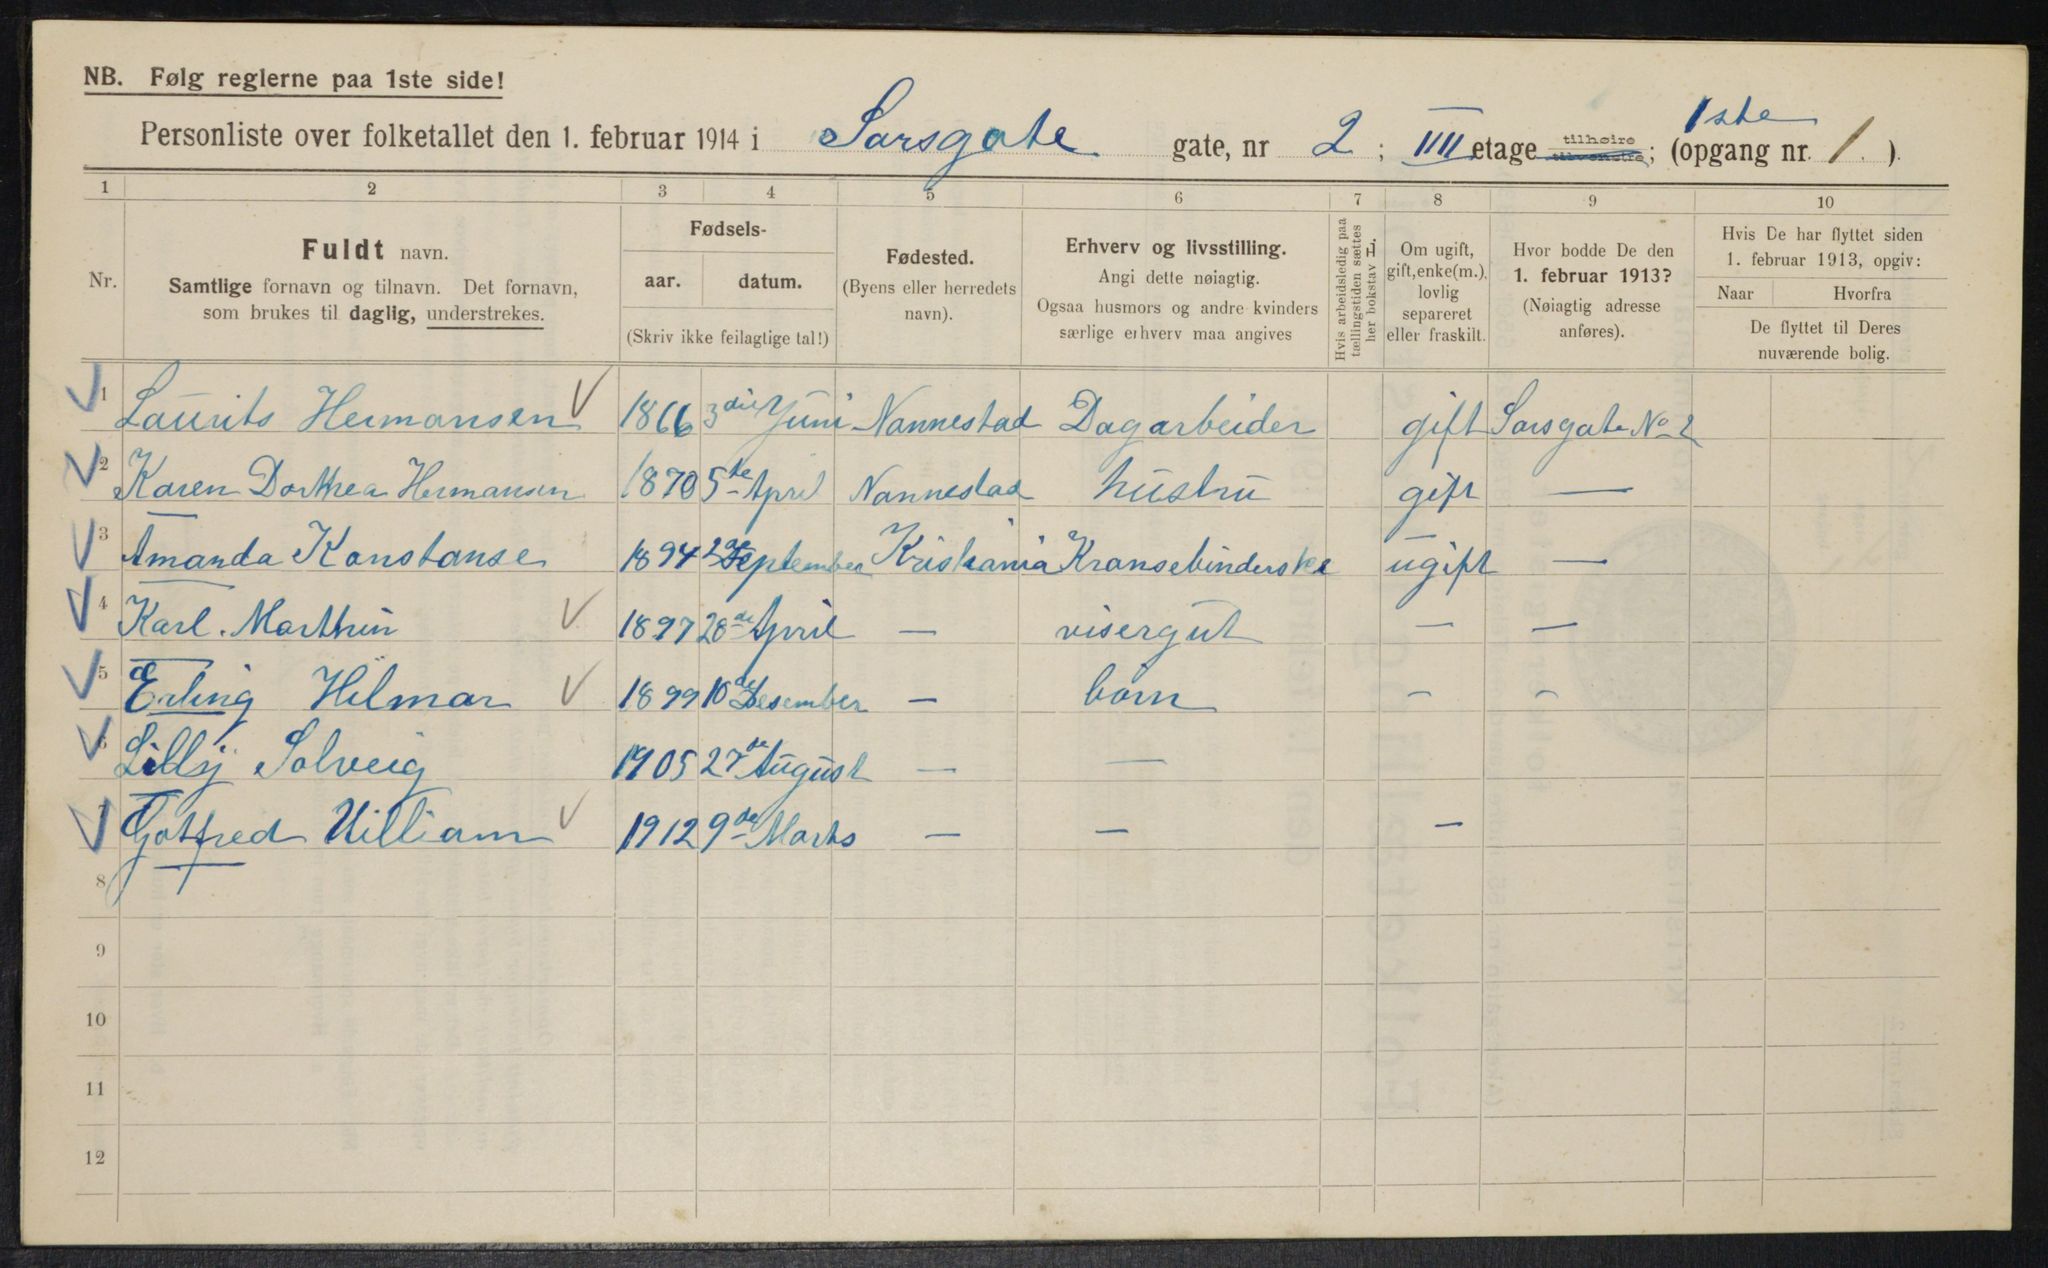 NB. Følg reglerne paa 1ste side!
Personliste over folketallet den 1. februar 1914 i Sarsgate gate, nr 2; IIII etage tilhøire tilvenstre; (opgang nr. 1ste 1.)
1 2 3 4 5 6 7 8 9 10
Nr.
Fuldt navn.
Samtlige fornavn og tilnavn. Det fornavn,
som brukes til daglig, understrekes.
Fødsels-
aar. datum.
(Skriv ikke feilagtige tal!)
Fødested.
(Byens eller herredets
navn).
Erhverv og livsstilling.
Angi dette nøiagtig.
Ogsaa husmors og andre kvinders
særlige erhverv maa angives
Hvis arbeidsledig paa
tællingstiden sættes
her bokstav L.
Om ugift,
gift, enke(m.),
lovlig
separeret
eller fraskilt.
Hvor bodde De den
1. februar 1913?
(Nøiagtig adresse
anføres).
Hvis De har flyttet siden
1. februar 1913, opgiv:
Naar Hvorfra
De flyttet til Deres
nuværende bolig.
1 Laurits Hermansen 1866 3die Juni Nannestad Dagarbeider gift Sarsgate No 2
2 Karen Dorthea Hermansen 1870 5te April Nannestad hustru gift —
3 Amanda Konstanse 1894 September Kristiania Kransebinderske ugift —
4 Karl. Marthin 1897 28de April — visergut — —
5 Erling Hilmar 1899 10de Desember — barn — —
6 Lilly Solveig 1905 27de August — —
7 Gotfred William 1912 9de Marts — — —
8
9
10
11
12